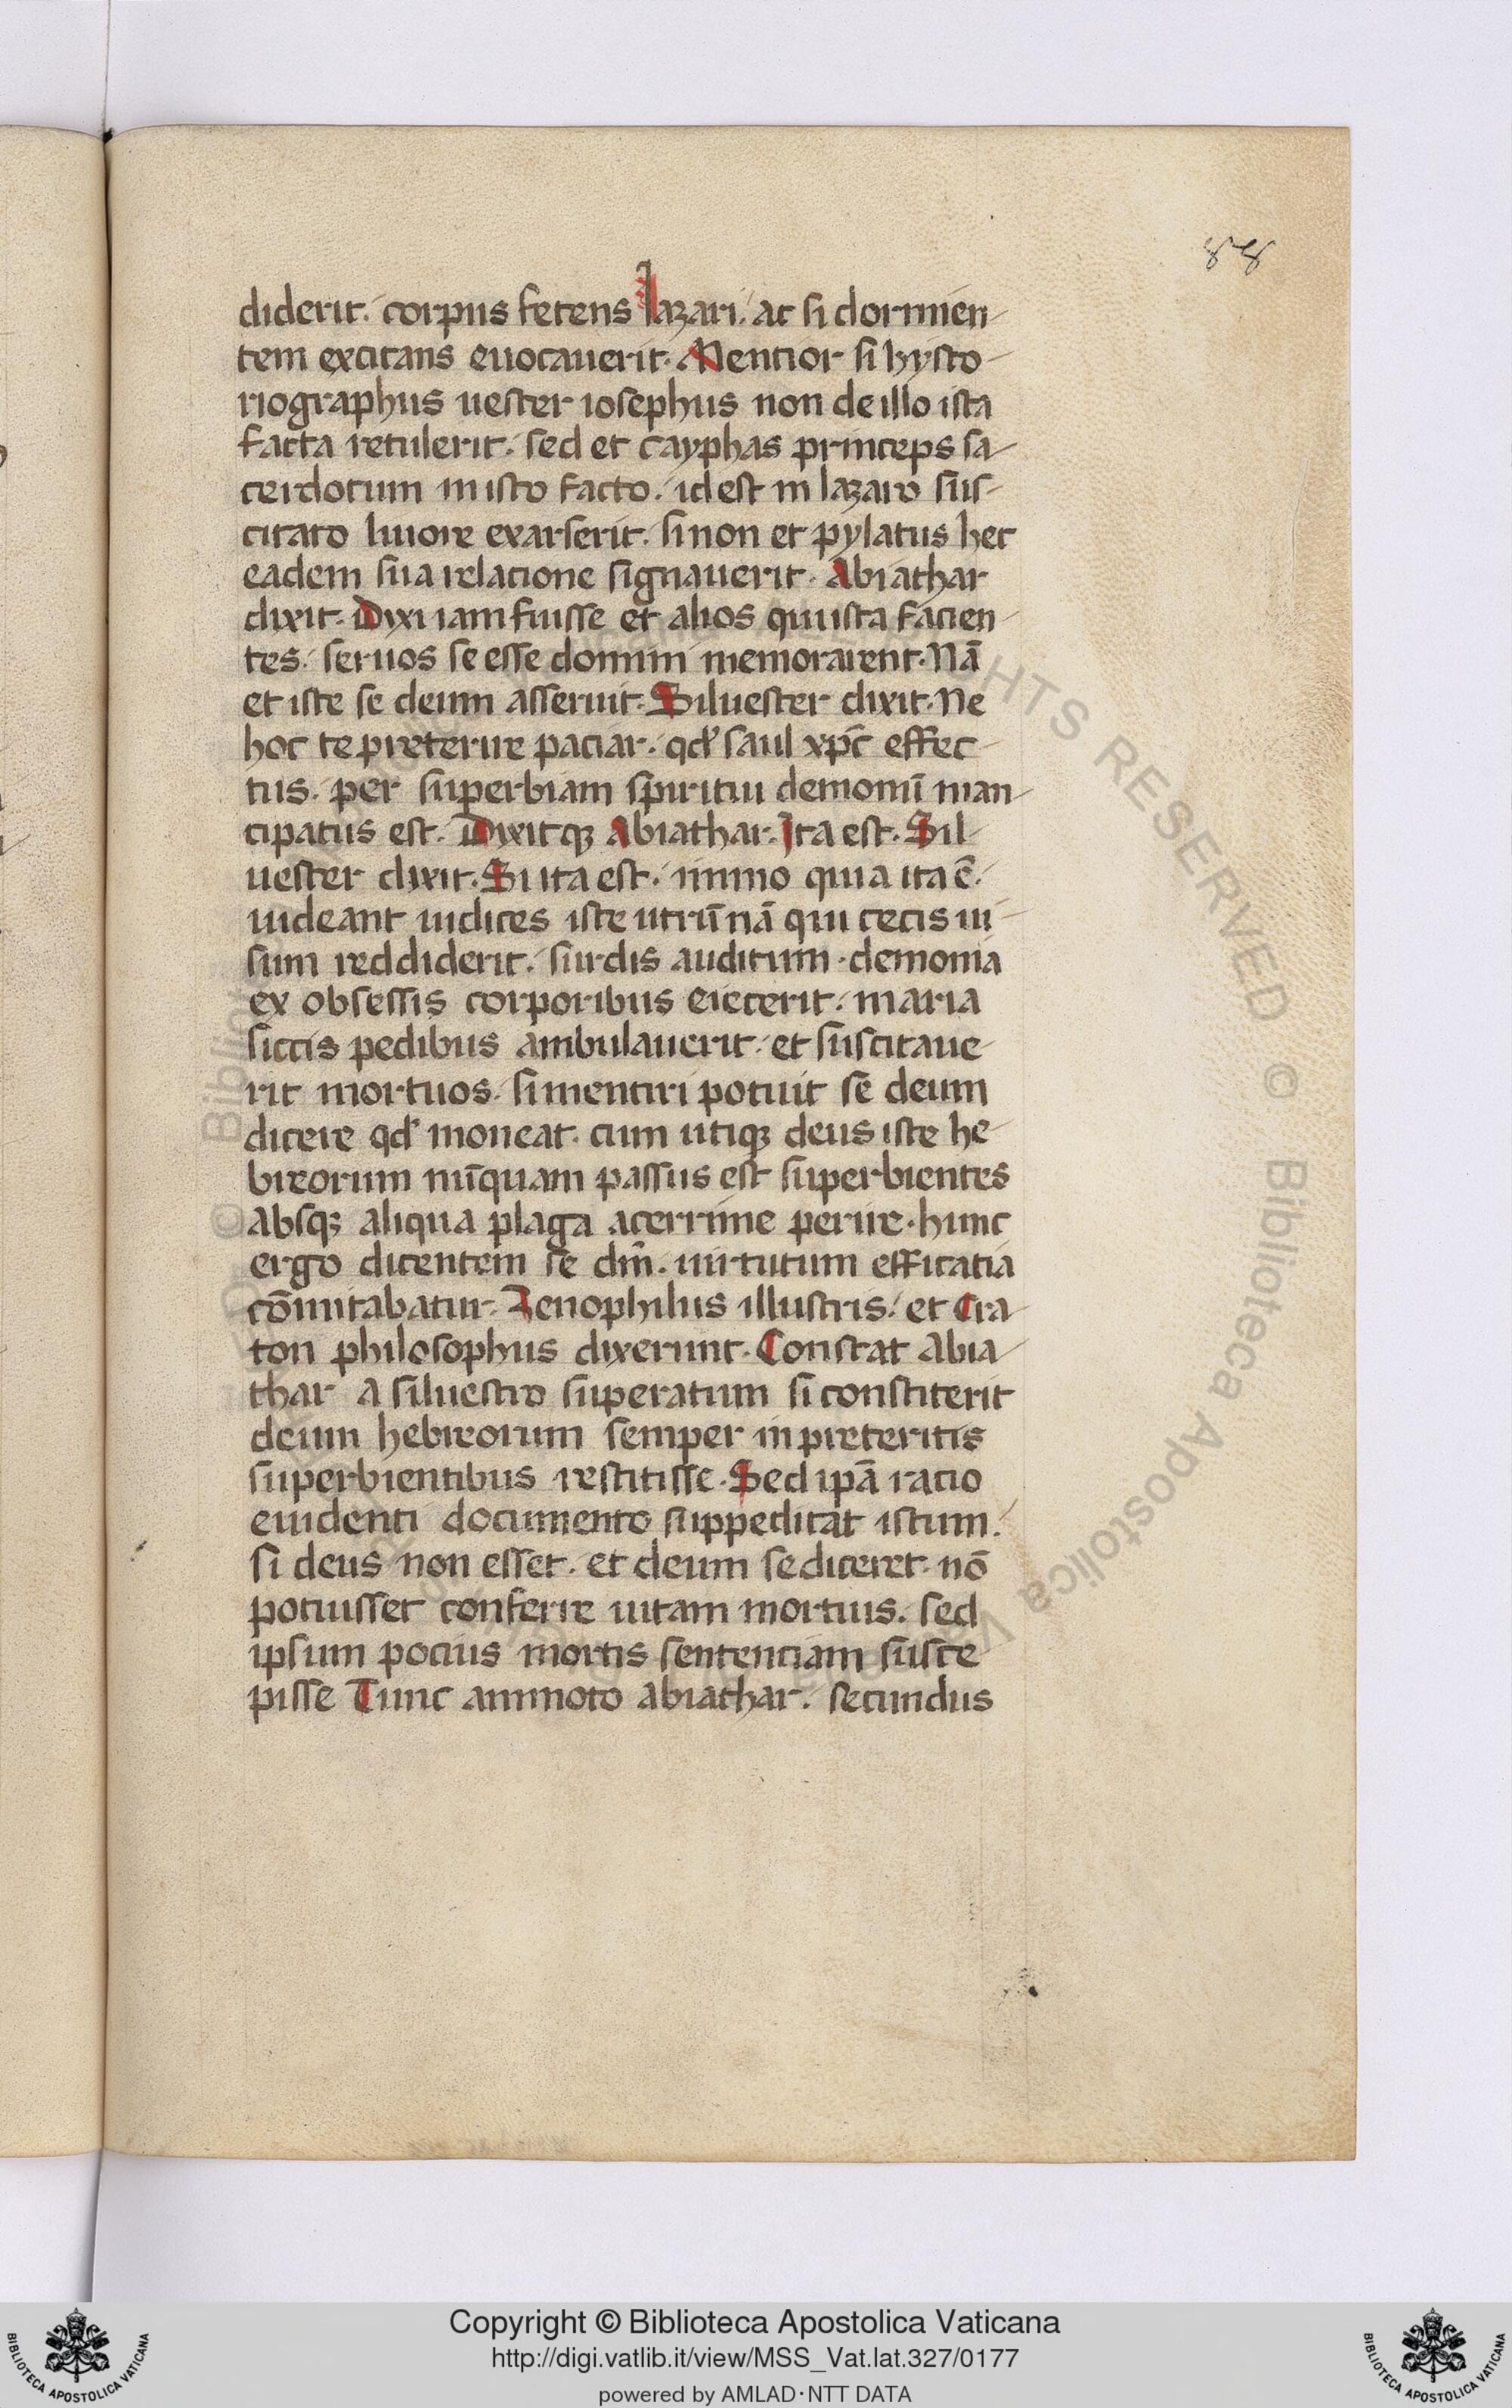 88
diderit. corpus fetens lazari. ac si dormien-
tem excitans euocauerit. Mentior si hysto-
riographus uester iosephus non de illo ista
facta retulerit. sed et cayphas princeps sa-
cerdotum in isto facto. id est in lazaro sus-
citato liuore exarserit. si non et pylatus hec
eadem sua relacione signauerit. Abiathar
dixit. Dixi iam fuisse et alios qui ista facien-
tes. seruos se esse domini memorarent. Nā
et iste se deum asseruit. Siluester dixit. Ne
hoc te preterire paciar. qđ saul xp̄c effec-
tus. per superbiam spiritui demoniū man-
cipatus est. Dixitqꝫ Abiathar. Ita est. Sil-
uester dixit. Si ita est. immo quia ita ē.
uideant iudices iste utrū nā qui cecis ui-
sum reddiderit. surdis auditum. demonia
ex obsessis corporibus eiecerit. maria
siccis pedibus ambulauerit. et suscitaue-
rit mortuos. si mentiri potuit se deum
dicere qđ moneat. cum utiqꝫ deus iste he-
breorum nūquam passus est superbientes
absqꝫ aliqua plaga acerrime perire. hunc
ergo dicentem se dm̄. uirtutum efficatia
cōmitabatur. Zenophilus illustris. et Cra-
ton philosophus dixerunt. Constat Abia-
thar a siluestro superatum si constiterit
deum hebreorum semper in preteritis
superbientibus restitisse. Sed ipā ratio
euidenti documento suppeditat istum.
si deus non esset. et deum se diceret. nō
potuisset conferre uitam mortuis. sed
ipsum pocius mortis sentenciam susce-
pisse Tunc ammoto abiathar. secundus
© Biblioteca Apostolica Vaticana
RIGHTS RESERVED © Biblioteca Apostolica Vaticana
Copyright © Biblioteca Apostolica Vaticana
http://digi.vatlib.it/view/MSS_Vat.lat.327/0177
powered by AMLAD·NTT DATA
BIBLIOTECA APOSTOLICA VATICANA
BIBLIOTECA APOSTOLICA VATICANA